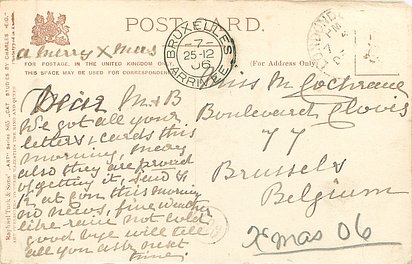 POST CARD.
a merry Xmas
FOR POSTAGE, IN THE UNITED KINGDOM
THIS SPACE MAY BE USED FOR CORRESPONDENCE
(For Address Only.)
BRUXELLES
7-
25-12
06
ARRIVÉE
Dear M & B
We got all your
letters, cards this
morning,
also they are proud
of getting it, send
at gon this morning
no news, fine weather
like rain not cold
good bye will tell
all you next
time.
Miss M Cochrane
Boulevard Clovis
77
Brussels
Belgium
Xmas 06
Raphael Tuck & Sons'